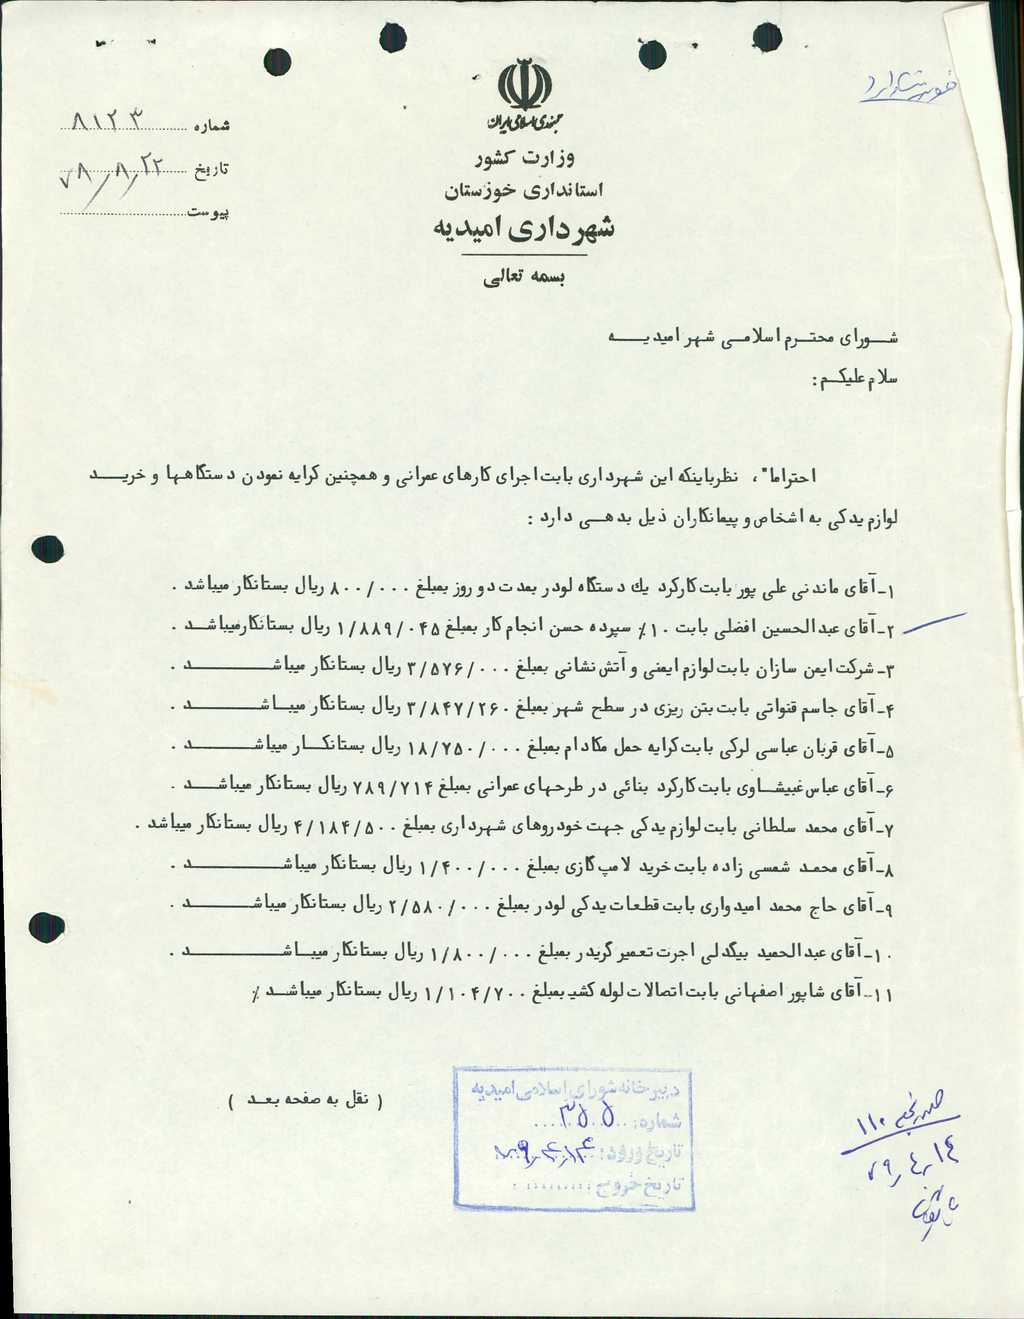 جمهوری اسلامی ایران
وزارت کشور
استانداری خوزستان
شهرداری امیدیه
بسمه تعالی
شماره ۸۱۲۳
تاریخ ۷۸/۸/۲۲
پیوست
شورای محترم اسلامی شهر امیدیه
سلام علیکم :
احتراما" ، نظرباینکه این شهرداری بابت اجرای کارهای عمرانی و همچنین کرایه نمودن دستگاهها و خرید
لوازم یدکی به اشخاص و پیمانکاران ذیل بدهی دارد :
۱ـ آقای ماندنی علی پور بابت کارکرد یك دستگاه لودر بمدت دو روز بمبلغ ۸۰۰/۰۰۰ ریال بستانکار میباشد .
۲ـ آقای عبدالحسین افضلی بابت ۱۰٪ سپرده حسن انجام کار بمبلغ ۱/۸۸۹/۰۴۵ ریال بستانکارمیباشد .
۳ـ شرکت ایمن سازان بابت لوازم ایمنی و آتش نشانی بمبلغ ۳/۵۷۶/۰۰۰ ریال بستانکار میباشد .
۴ـ آقای جاسم قنواتی بابت بتن ریزی در سطح شهر بمبلغ ۳/۸۴۷/۲۶۰ ریال بستانکار میباشد .
۵ـ آقای قربان عباسی لرکی بابت کرایه حمل مکادام بمبلغ ۱۸/۷۵۰/۰۰۰ ریال بستانکار میباشد .
۶ـ آقای عباس غبیشاوی بابت کارکرد بنائی در طرحهای عمرانی بمبلغ ۷۸۹/۷۱۴ ریال بستانکار میباشد .
۷ـ آقای محمد سلطانی بابت لوازم یدکی جهت خودروهای شهرداری بمبلغ ۴/۱۸۴/۵۰۰ ریال بستانکار میباشد .
۸ـ آقای محمد شمسی زاده بابت خرید لامپ گازی بمبلغ ۱/۴۰۰/۰۰۰ ریال بستانکار میباشد .
۹ـ آقای حاج محمد امیدواری بابت قطعات یدکی لودر بمبلغ ۲/۵۸۰/۰۰۰ ریال بستانکار میباشد .
۱۰ـ آقای عبدالحمید بیگدلی اجرت تعمیر گریدر بمبلغ ۱/۸۰۰/۰۰۰ ریال بستانکار میباشد .
۱۱ـ آقای شاپور اصفهانی بابت اتصالات لوله کشی بمبلغ ۱/۱۰۴/۷۰۰ ریال بستانکار میباشد ٪
( نقل به صفحه بعد )
دبیرخانه شورای اسلامی امیدیه
شماره:
تاریخ ورود:
تاریخ خروج:
۱۱۰
۷۹/۴/۱۴